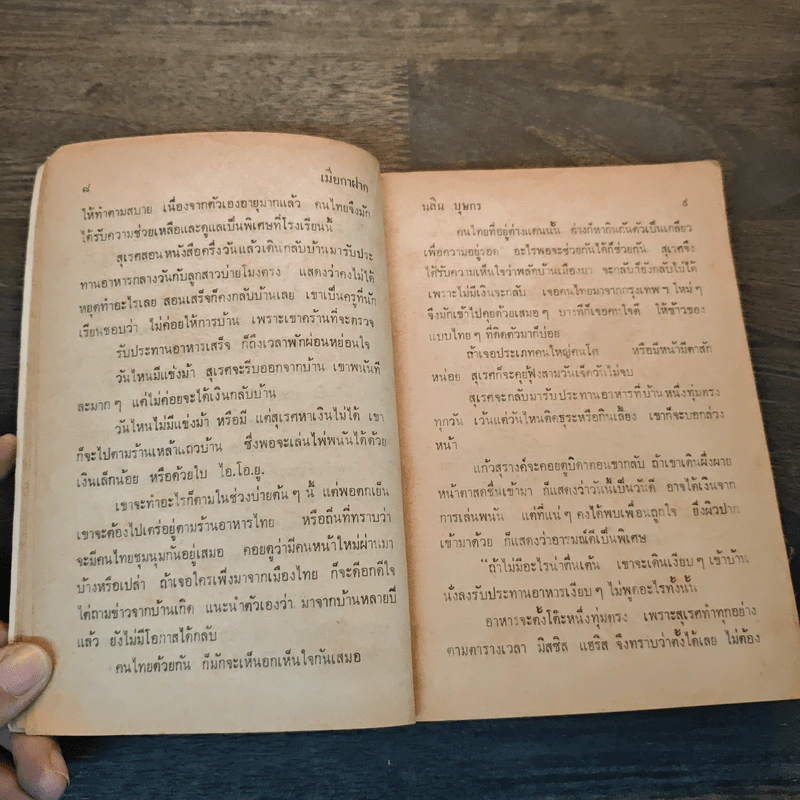 ๘ เมียกาฝาก
ให้ทำตามสบาย เนื่องจากตัวเองอายุมากแล้ว คนไทยจึงมัก
ได้รับความช่วยเหลือและดูแลเป็นพิเศษที่โรงเรียนนี้
สุเรศสอนหนังสือครึ่งวันแล้วเดินกลับบ้านมารับประ
ทานอาหารกลางวันกับลูกสาวบ่ายโมงตรง แสดงว่าคงไม่ได้
หยุดทำอะไรเลย สอนเสร็จก็ตรงกลับบ้านเลย เขาเป็นครูที่นัก
เรียนชอบว่า ไม่ค่อยให้การบ้าน เพราะเขาคร้านที่จะตรวจ
รับประทานอาหารเสร็จ ก็ถึงเวลาพักผ่อนหย่อนใจ
วันไหนมีแข่งม้า สุเรศจะรีบออกจากบ้าน เขาพนันที
ละมาก ๆ แต่ไม่ค่อยจะได้เงินกลับบ้าน
วันไหนไม่มีแข่งม้า หรือมี แต่สุเรศหาเงินไม่ได้ เขา
ก็จะไปตามร้านเหล้าแถวบ้าน ซึ่งพอจะเล่นไพ่พนันได้ด้วย
เงินเล็กน้อย หรือด้วยใบ ไอ.โอ.ยู.
เขาจะทำอะไรก็ตามในช่วงบ่ายต้น ๆ นี้ แต่พอตกเย็น
เขาจะต้องไปเตร่อยู่ตามร้านอาหารไทย หรือถิ่นที่ทราบว่า
จะมีคนไทยชุมนุมกันอยู่เสมอ คอยดูว่ามีคนหน้าใหม่ผ่านมา
บ้างหรือเปล่า ถ้าเจอใครเพิ่งมาจากเมืองไทย ก็จะดีอกดีใจ
ไต่ถามข่าวจากบ้านเกิด แนะนำตัวเองว่า มาจากบ้านหลายปี
แล้ว ยังไม่มีโอกาสได้กลับ
คนไทยด้วยกัน ก็มักจะเห็นอกเห็นใจกันเสมอ
นลิน บุษกร ๙
คนไทยที่อยู่ต่างแดนนั้น ต่างก็หากินกันตัวเป็นเกลียว
เพื่อความอยู่รอด อะไรพอจะช่วยกันได้ก็ช่วยกัน สุเรศจึง
ได้รับความเห็นใจว่าพลัดบ้านเมืองมา จะกลับก็ยังกลับไม่ได้
เพราะไม่มีเงินจะกลับ เจอคนไทยมาจากกรุงเทพฯ ใหม่ ๆ
จึงมักเข้าไปคุยด้วยเสมอ ๆ บางทีก็เจอคนใจดี ให้ข้าวของ
แบบไทย ๆ ที่ติดตัวมาก็บ่อย
ถ้าเจอประเภทคนใหญ่คนโต หรือมีหน้ามีตาสัก
หน่อย สุเรศก็จะคุยฟุ้งสามวันเจ็ดวันไม่จบ
สุเรศจะกลับมารับประทานอาหารที่บ้านหนึ่งทุ่มตรง
ทุกวัน เว้นแต่วันไหนติดธุระหรือกินเลี้ยง เขาก็จะบอกล่วง
หน้า
แก้วสุรางค์จะคอยดูบิดาตอนขากลับ ถ้าเขาเดินผึ่งผาย
หน้าตาสดชื่นเข้ามา ก็แสดงว่าวันนี้เป็นวันดี อาจได้เงินจาก
การเล่นพนัน แต่ที่แน่ ๆ คงได้พบเพื่อนถูกใจ ยิ่งผิวปาก
เข้ามาด้วย ก็แสดงว่าอารมณ์ดีเป็นพิเศษ
"ถ้าไม่มีอะไรน่าตื่นเต้น เขาจะเดินเงียบ ๆ เข้าบ้าน
นั่งลงรับประทานอาหารเงียบ ๆ ไม่พูดอะไรทั้งนั้น
อาหารจะตั้งโต๊ะหนึ่งทุ่มตรง เพราะสุเรศทำทุกอย่าง
ตามตารางเวลา มิสซิส แฮริส จึงทราบว่าตั้งได้เลย ไม่ต้อง